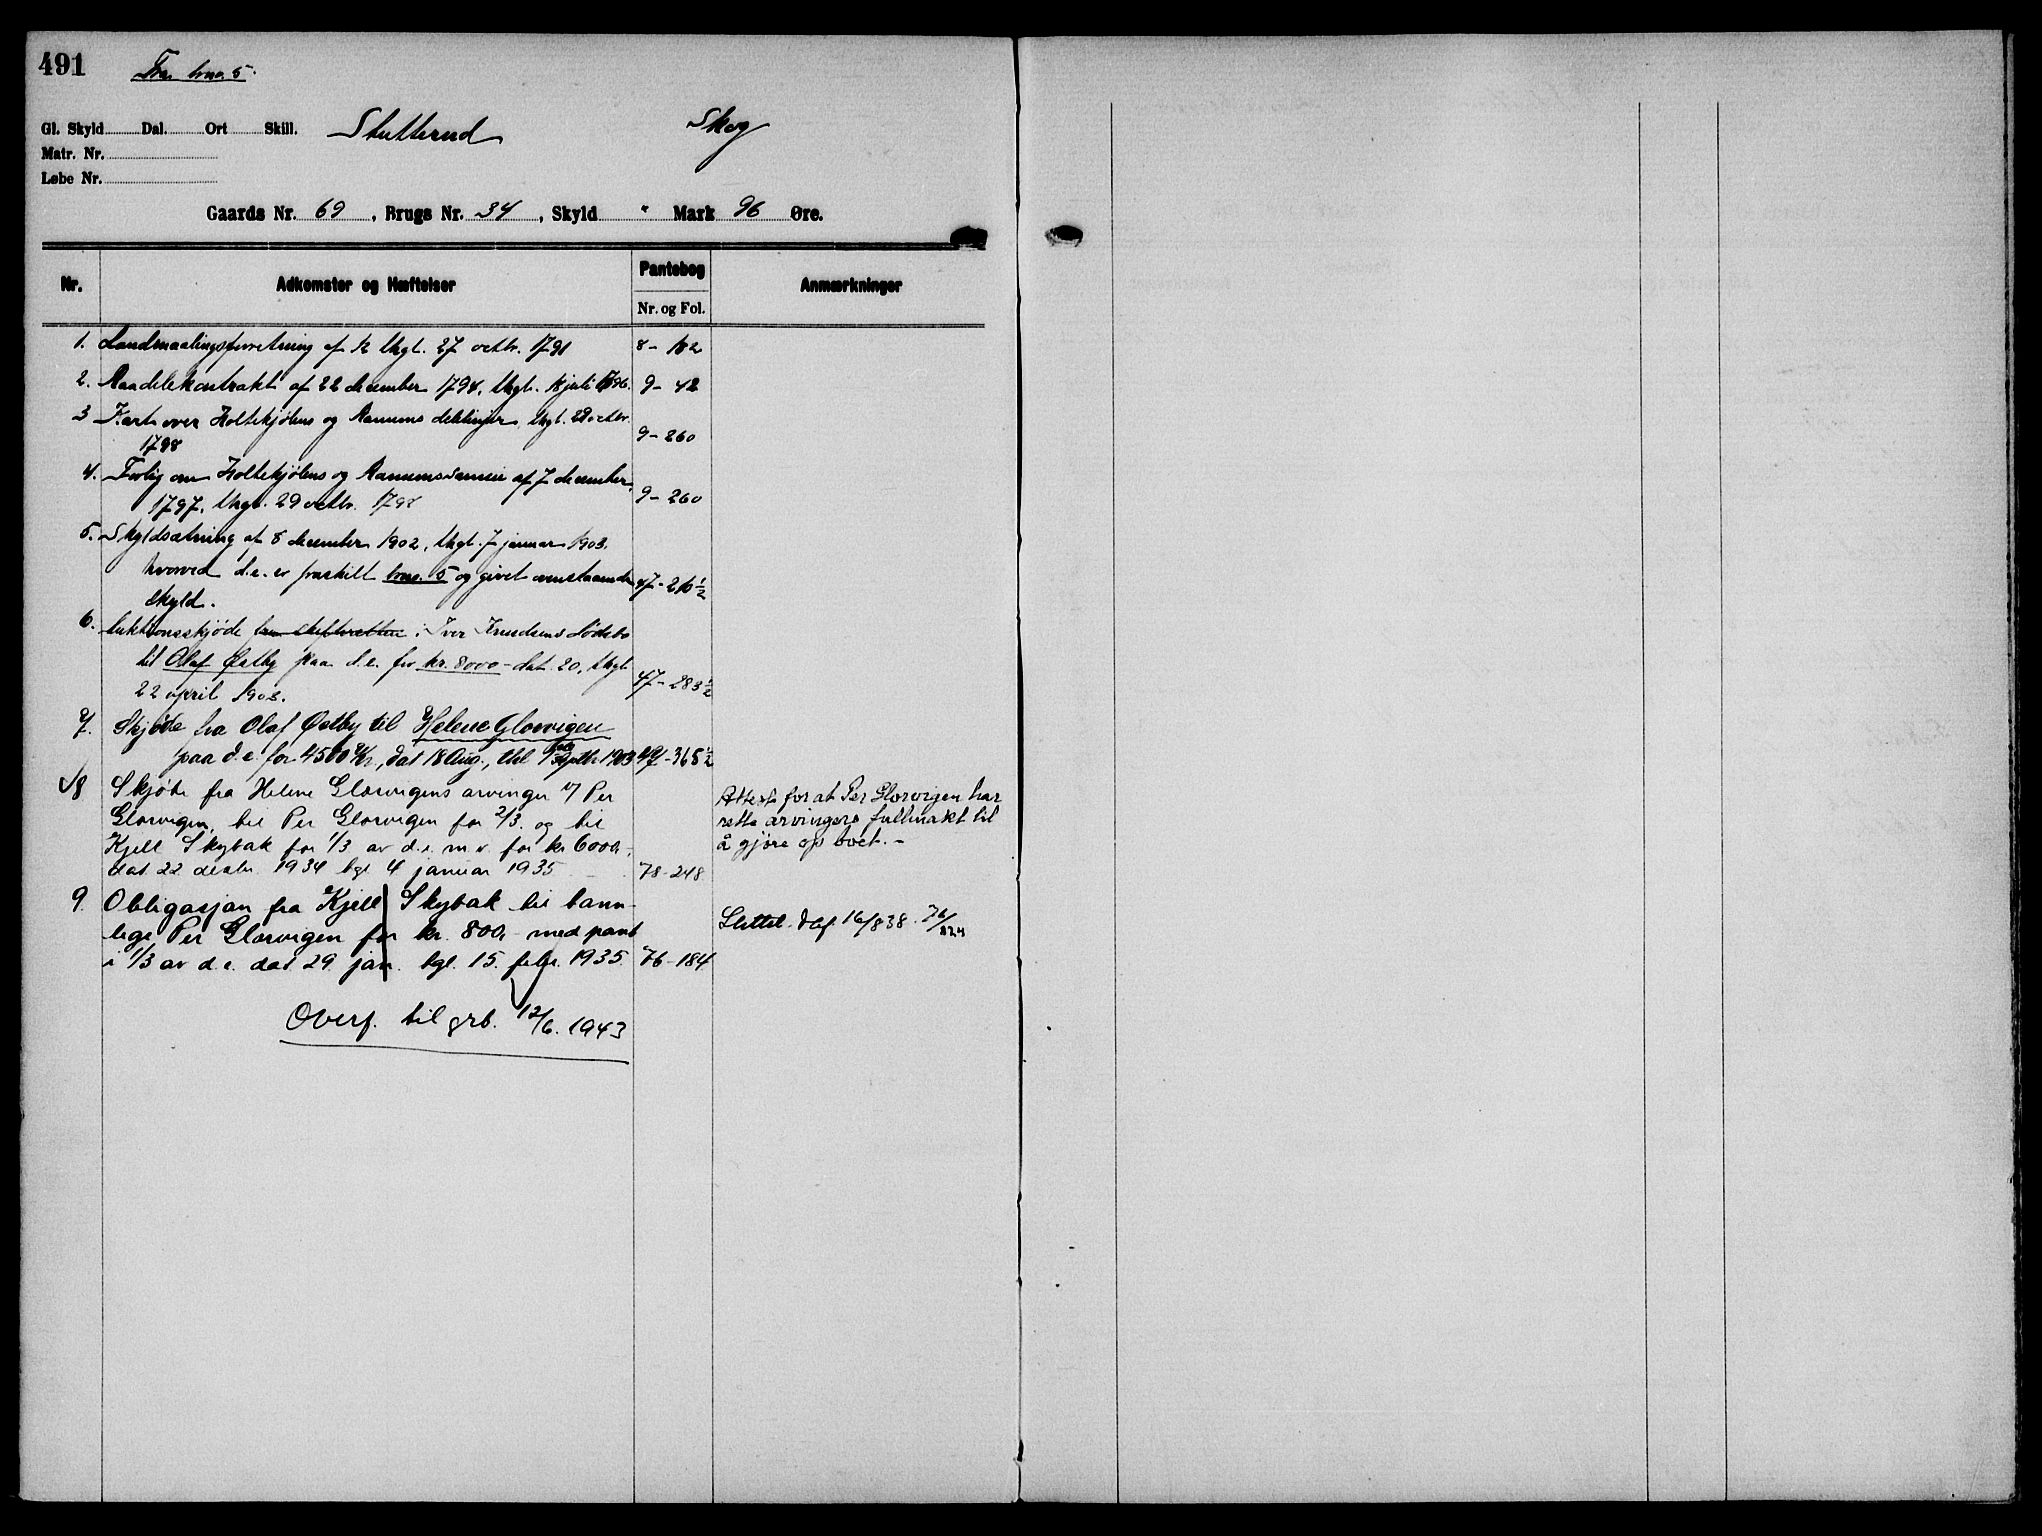 491
Fra bno. 5.
Gl. Skyld Dal. Ort Skill. Stutterud Skog
Matr. Nr.
Løbe Nr.
Gaards Nr. 69, Brugs Nr. 34, Skyld " Mark 96 Øre.
Nr. Adkomster og Hæftelser Pantebog Anmærkninger
Nr. og Fol.
1. Landmaalingsforretning af thgl. 27 octbr. 1791 8-182
2. Raadelekontrakt af 22 december 1794, thgl. juli 1796. 9-42
3 Kart over Holtekjølens og Ranums delelinjer, thgl. 29 octbr.
1798 9-260
4. Forlig om Holtekjølens og Ranumssameie af 7 december
1797, thgl. 29 octbr. 1798 9-260
5. Skyldsætning af 8 december 1902, thgl. 7 januar 1903,
hvorved d.e. er fraskilt bno. 5 og givet ovenstaaende
skyld. 47-210½
6. Auktionsskjøde fra skifteretten i Iver Knudsens dødsbo
til Olaf Østby paa d.e. for kr. 8000 - dat. 20, thgl
22 april 1903. 47-283½
7. Skjøde fra Olaf Østby til Helene Glorvigen
paa d.e. for 4500 Kr., dat 18 Aug., thl 1 Septbr 1903 47-368½
8 Skjøte fra Helene Glorvigens arvinger v/ Per
Glorvigen, til Per Glorvigen for 2/3. og til
Kjell Skybak for 1/3 av d.e. m.v. for kr 6000,-
dat 22 desbr. 1934 tgl 4 januar 1935 78-248
Attest for at Per Glorvigen har
rette arvingers fullmakt til
å gjøre op boet. -
9. Obligasjon fra Kjell Skybak til tann-
lege Per Glorvigen for kr. 800,- med pant
i 1/3 av d.e. dat 29. jan. tgl. 15. febr. 1935. 76-184
Slettet. Daf. 16/8 38. 76/824
Overf. til grb. 12/6. 1943